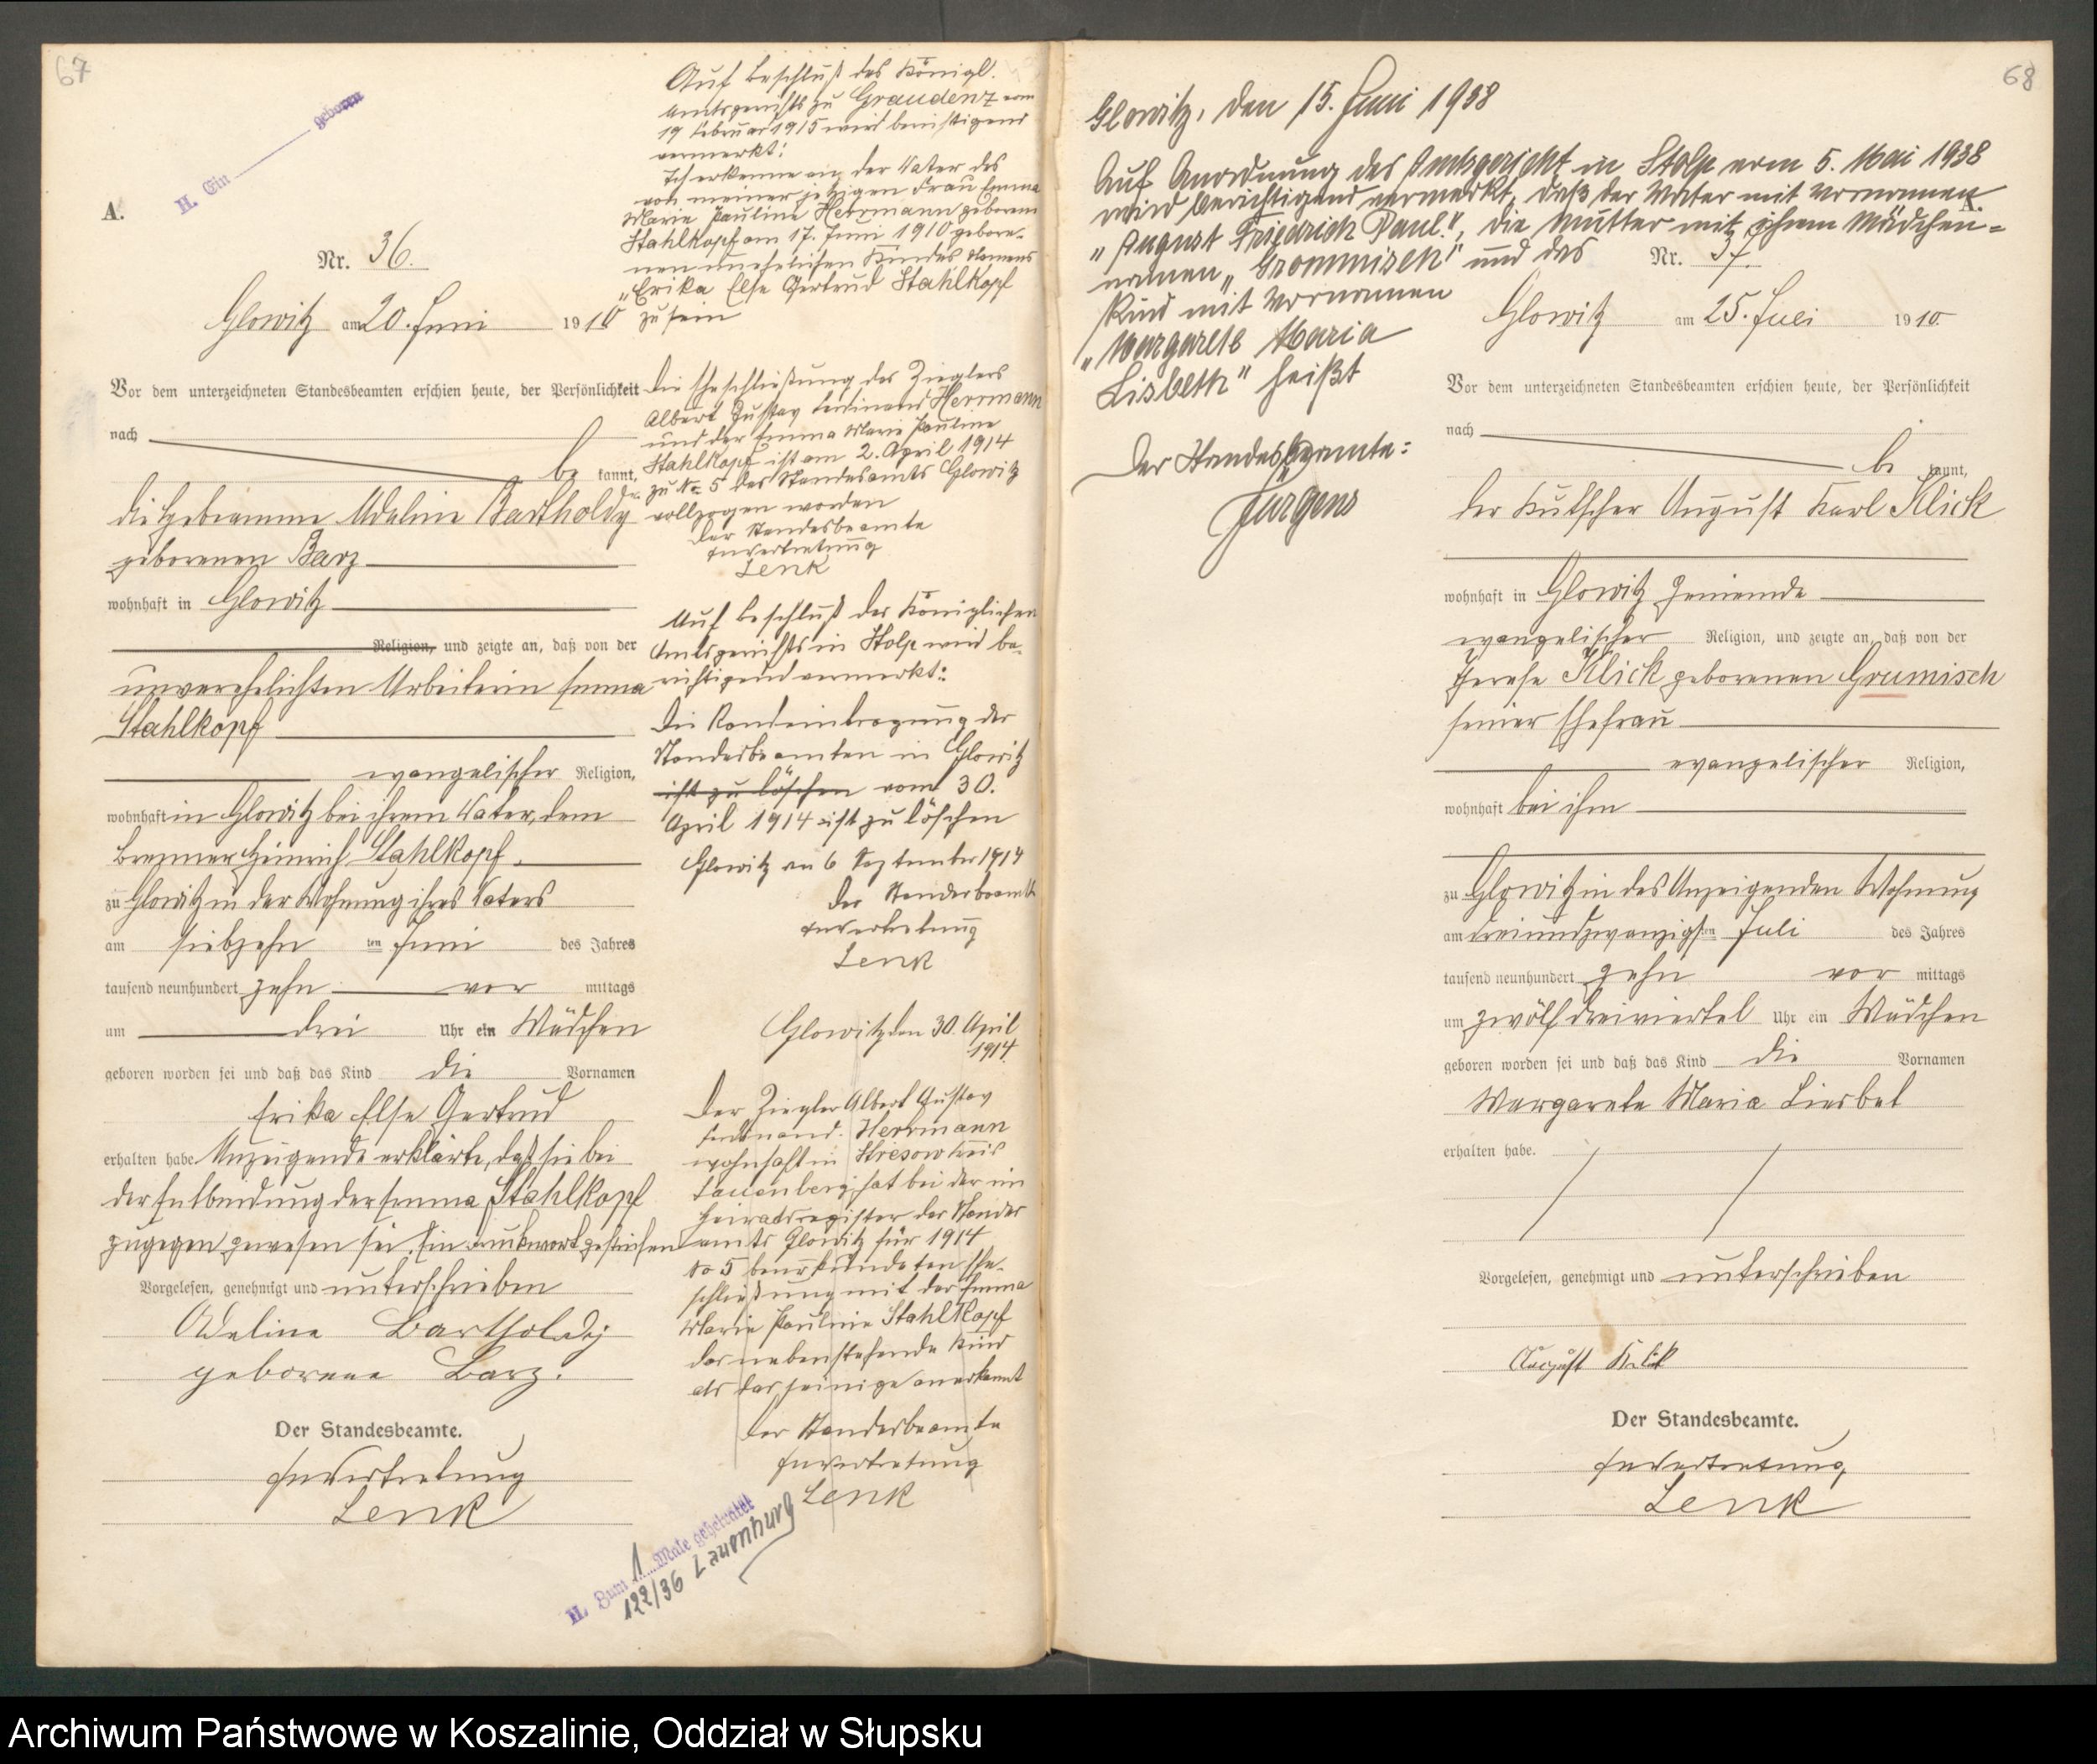 67
II. Ein geboren
A.
Nr. 36.
Glowitz am 20. Juni 1910
Vor dem unterzeichneten Standesbeamten erschien heute, der Persönlichkeit
nach
be kannt,
die Hebeamme Adeline Bartholdy
geborenen Barz
wohnhaft in Glowitz
Religion, und zeigte an, daß von der
unverehelichten Arbeiterin Emma
Stahlkopf
evangelischer Religion,
wohnhaft in Glowitz bei ihrem Vater, dem
Brenner Heinrich Stahlkopf,
zu Glowitz in der Wohnung ihres Vaters
am siebzehn ten Juni des Jahres
tausend neunhundert zehn vor mittags
um drei Uhr ein Mädchen
geboren worden sei und daß das Kind die Vornamen
Erika Else Gertrud
erhalten habe. Anzeigende erklärte, daß sie bei
der Entbindung der Emma Stahlkopf
zugegen gewesen sei. Ein Druckwort gestrichen
Vorgelesen, genehmigt und unterschrieben
Adeline Bartholdy
geborene Barz.
Der Standesbeamte.
In Vertretung
Lenk
Auf Beschluß des Königl.
Amtsgerichts zu Graudenz vom
19 Februar 1915 wird berichtigend
vermerkt:
Ich erkenne an der Vater des
von meiner jetzigen Frau Emma
Marie Pauline Herrmann geborenen
Stahlkopf am 17. Juni 1910 gebore-
nen unehelichen Kindes Namens
"Erika Else Gertrud Stahlkopf
zu sein
Die Eheschließung des Zieglers
Albert Gustav Ferdinand Herrmann
und der Emma Marie Pauline
Stahlkopf ist am 2. April 1914
zu No 5 des Standesamts Glowitz
vollzogen worden
Der Standesbeamte
In Vertretung
Lenk
Auf Beschluß des Königlichen
Amtsgerichts in Stolp wird be-
richtigend vermerkt:
Die Randeintragung des
Standesbeamten in Glowitz
ist zu löschen vom 30.
April 1914 ist zu löschen
Glowitz am 6 September 1914
Der Standesbeamte
In Vertretung
Lenk
Glowitz den 30. April
1914.
Der Ziegler Albert Gustav
Ferdinand Herrmann
wohnhaft in Stresow Kreis
Lauenberg, hat bei der im
Heiratsregister des Standes
amts Glowitz für 1914
No 5 beurkundeten Ehe-
schließung mit der Emma
Marie Pauline Stahlkopf
das nebenstehende Kind
als das seinige anerkannt
Der Standesbeamte
In Vertretung
Lenk
II. Zum 1 Male geheiratet
122/36 Lauenburg
68
Glowitz, den 15. Juni 1938
Auf Anordnung des Amtsgericht in Stolp vom 5. Mai 1938
wird berichtigend vermerkt, daß der Vater mit Vornamen
"August Friedrich Paul", die Mutter mit ihrem Mädchen=
namen "Grommisch" und das
Kind mit Vornamen
"Margarete Maria
Lisbeth" heißt
Der Standesbeamte:
Jürgens
A.
Nr. 37.
Glowitz am 25. Juli 1910.
Vor dem unterzeichneten Standesbeamten erschien heute, der Persönlichkeit
nach
be kannt,
der Kutscher August Karl Klick
wohnhaft in Glowitz Gemeinde
evangelischer Religion, und zeigte an, daß von der
Therese Klick geborenen Grumisch
seiner Ehefrau
evangelischer Religion,
wohnhaft bei ihm
zu Glowitz in des Anzeigenden Wohnung
am dreiundzwanzigsten Juli des Jahres
tausend neunhundert zehn vor mittags
um zwölf dreiviertel Uhr ein Mädchen
geboren worden sei und daß das Kind die Vornamen
Margarete Maria Liesbet
erhalten habe.
Vorgelesen, genehmigt und unterschrieben
August Klick
Der Standesbeamte.
In Vertretung
Lenk
Archiwum Państwowe w Koszalinie, Oddział w Słupsku